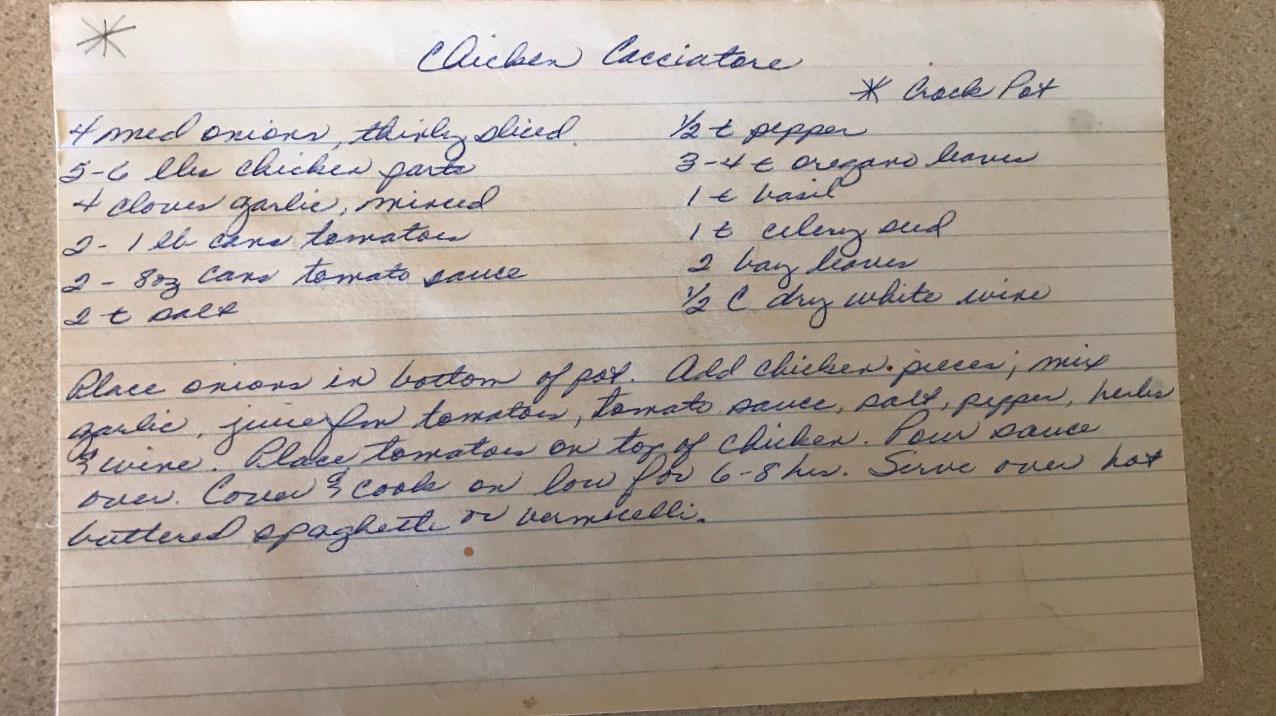 Chicken Cacciatore
* Crock Pot
4 med onions, thinly sliced
5-6 lbs chicken parts
4 cloves garlic, minced
2 - 1 lb cans tomatoes
2 - 8oz cans tomato sauce
2 t salt
1/2 t pepper
3-4 t oregano leaves
1 t basil
1 t celery seed
2 bay leaves
1/2 C dry white wine
Place onions in bottom of pot. Add chicken pieces; mix
garlic, juice fm tomatoes, tomato sauce, salt, pepper, herbs
& wine. Place tomatoes on top of chicken. Pour sauce
over. Cover & cook on low for 6-8 hrs. Serve over hot
buttered spaghetti or vermicelli.